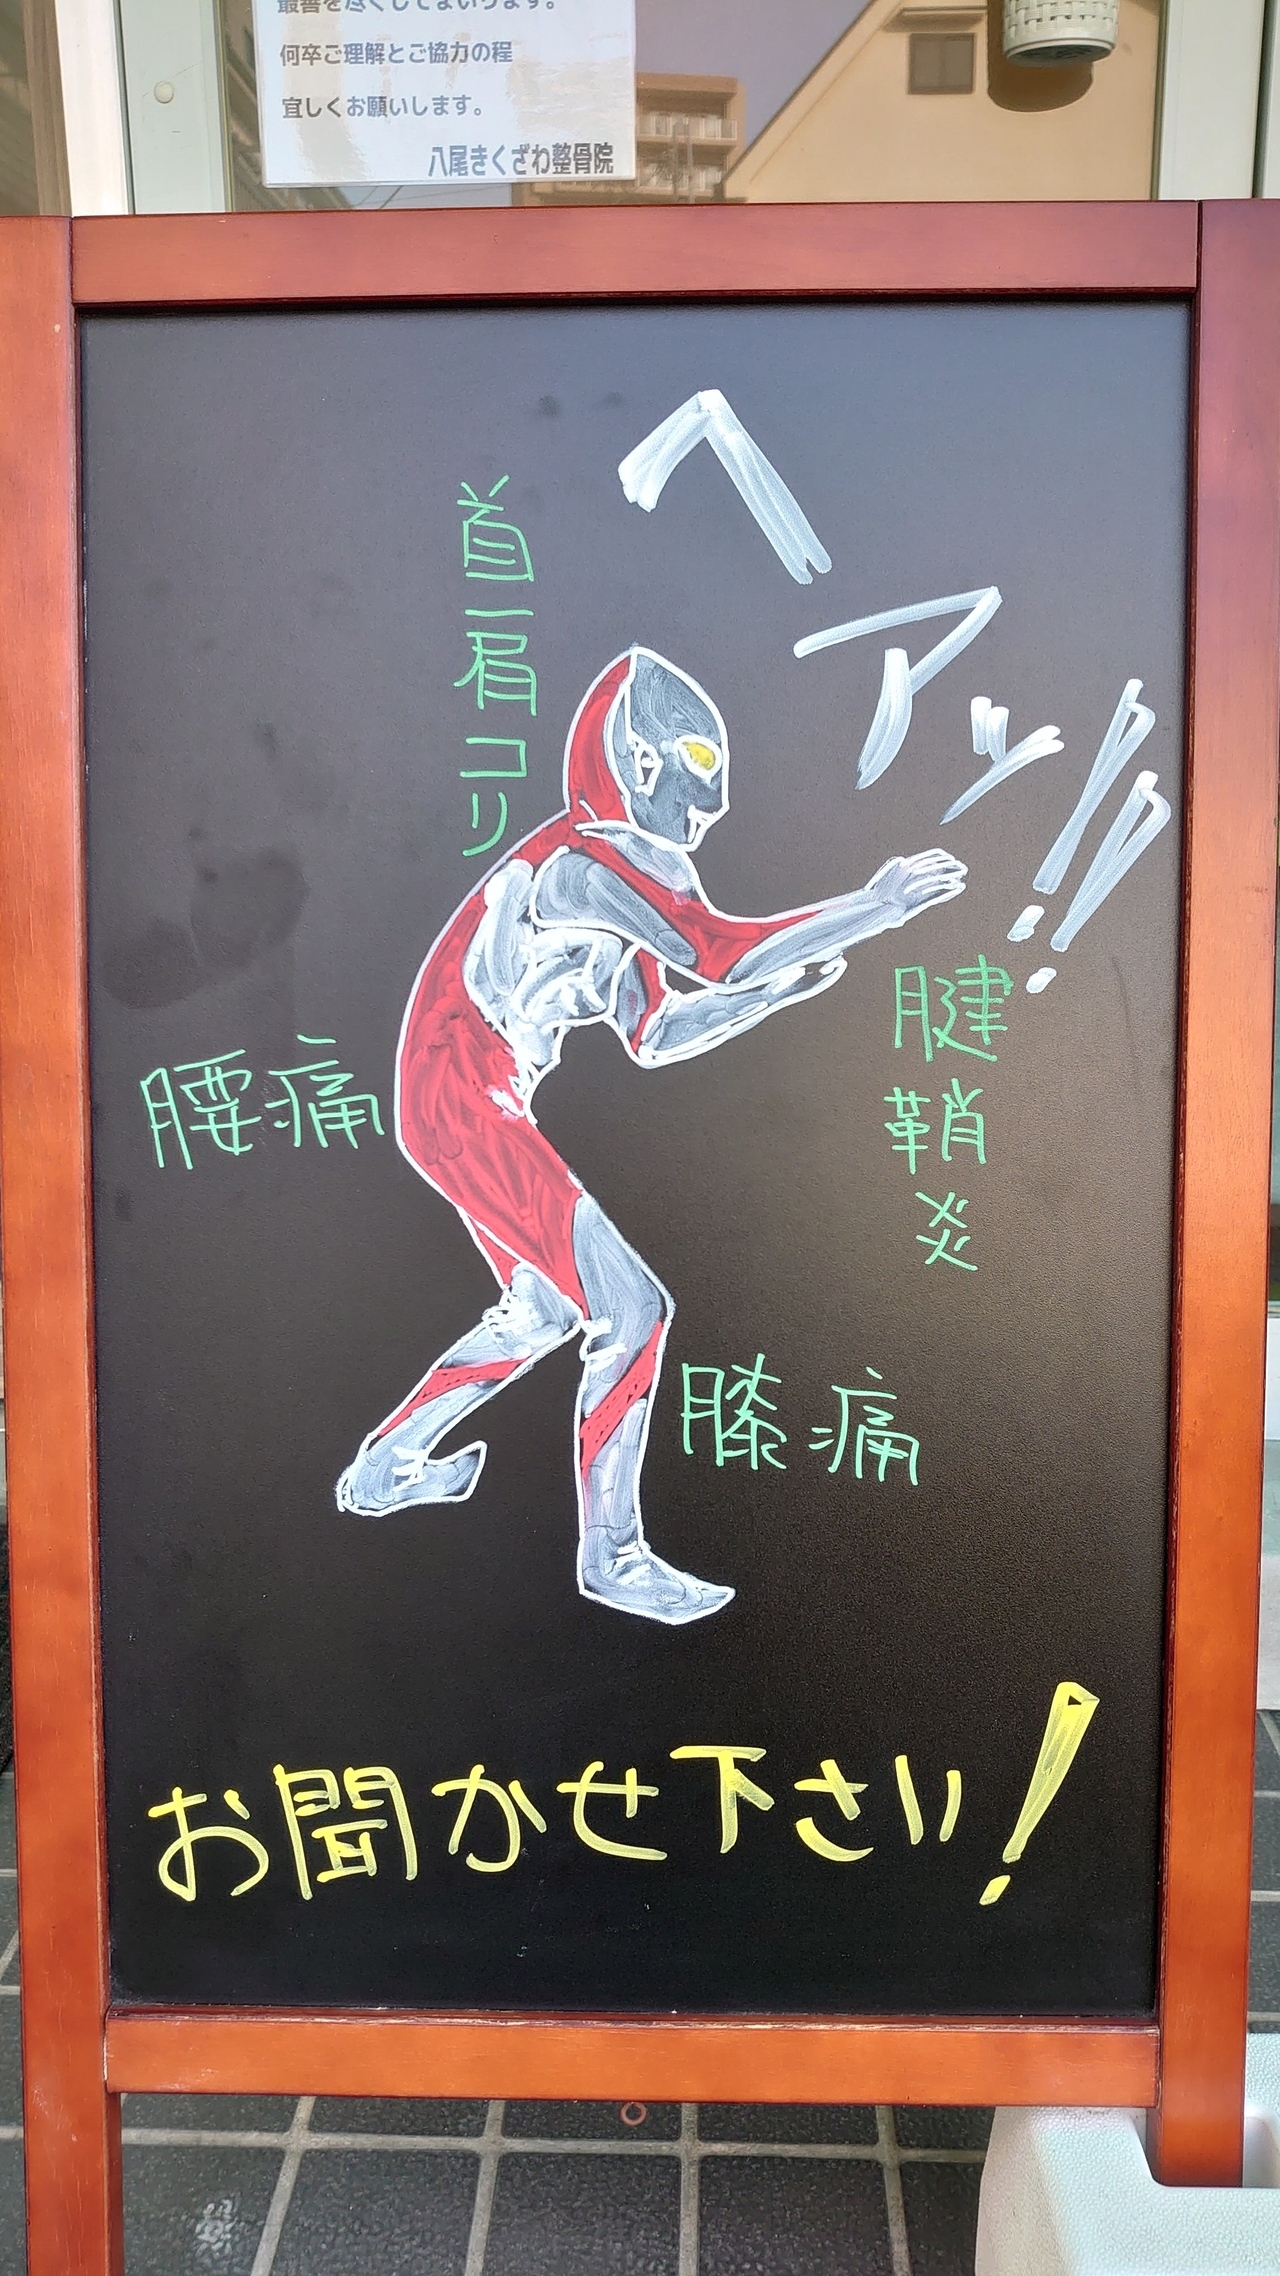 最善を尽くしてまいります。
何卒ご理解とご協力の程
宜しくお願いします。
八尾きくざわ整骨院
ヘアッ!!
首肩コリ
腱鞘炎
腰痛
膝痛
お聞かせ下さい!